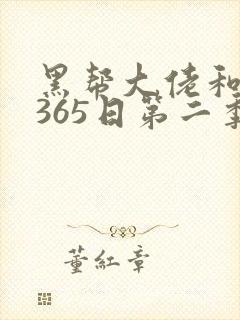 黑帮大佬和
365日第二季
董红章